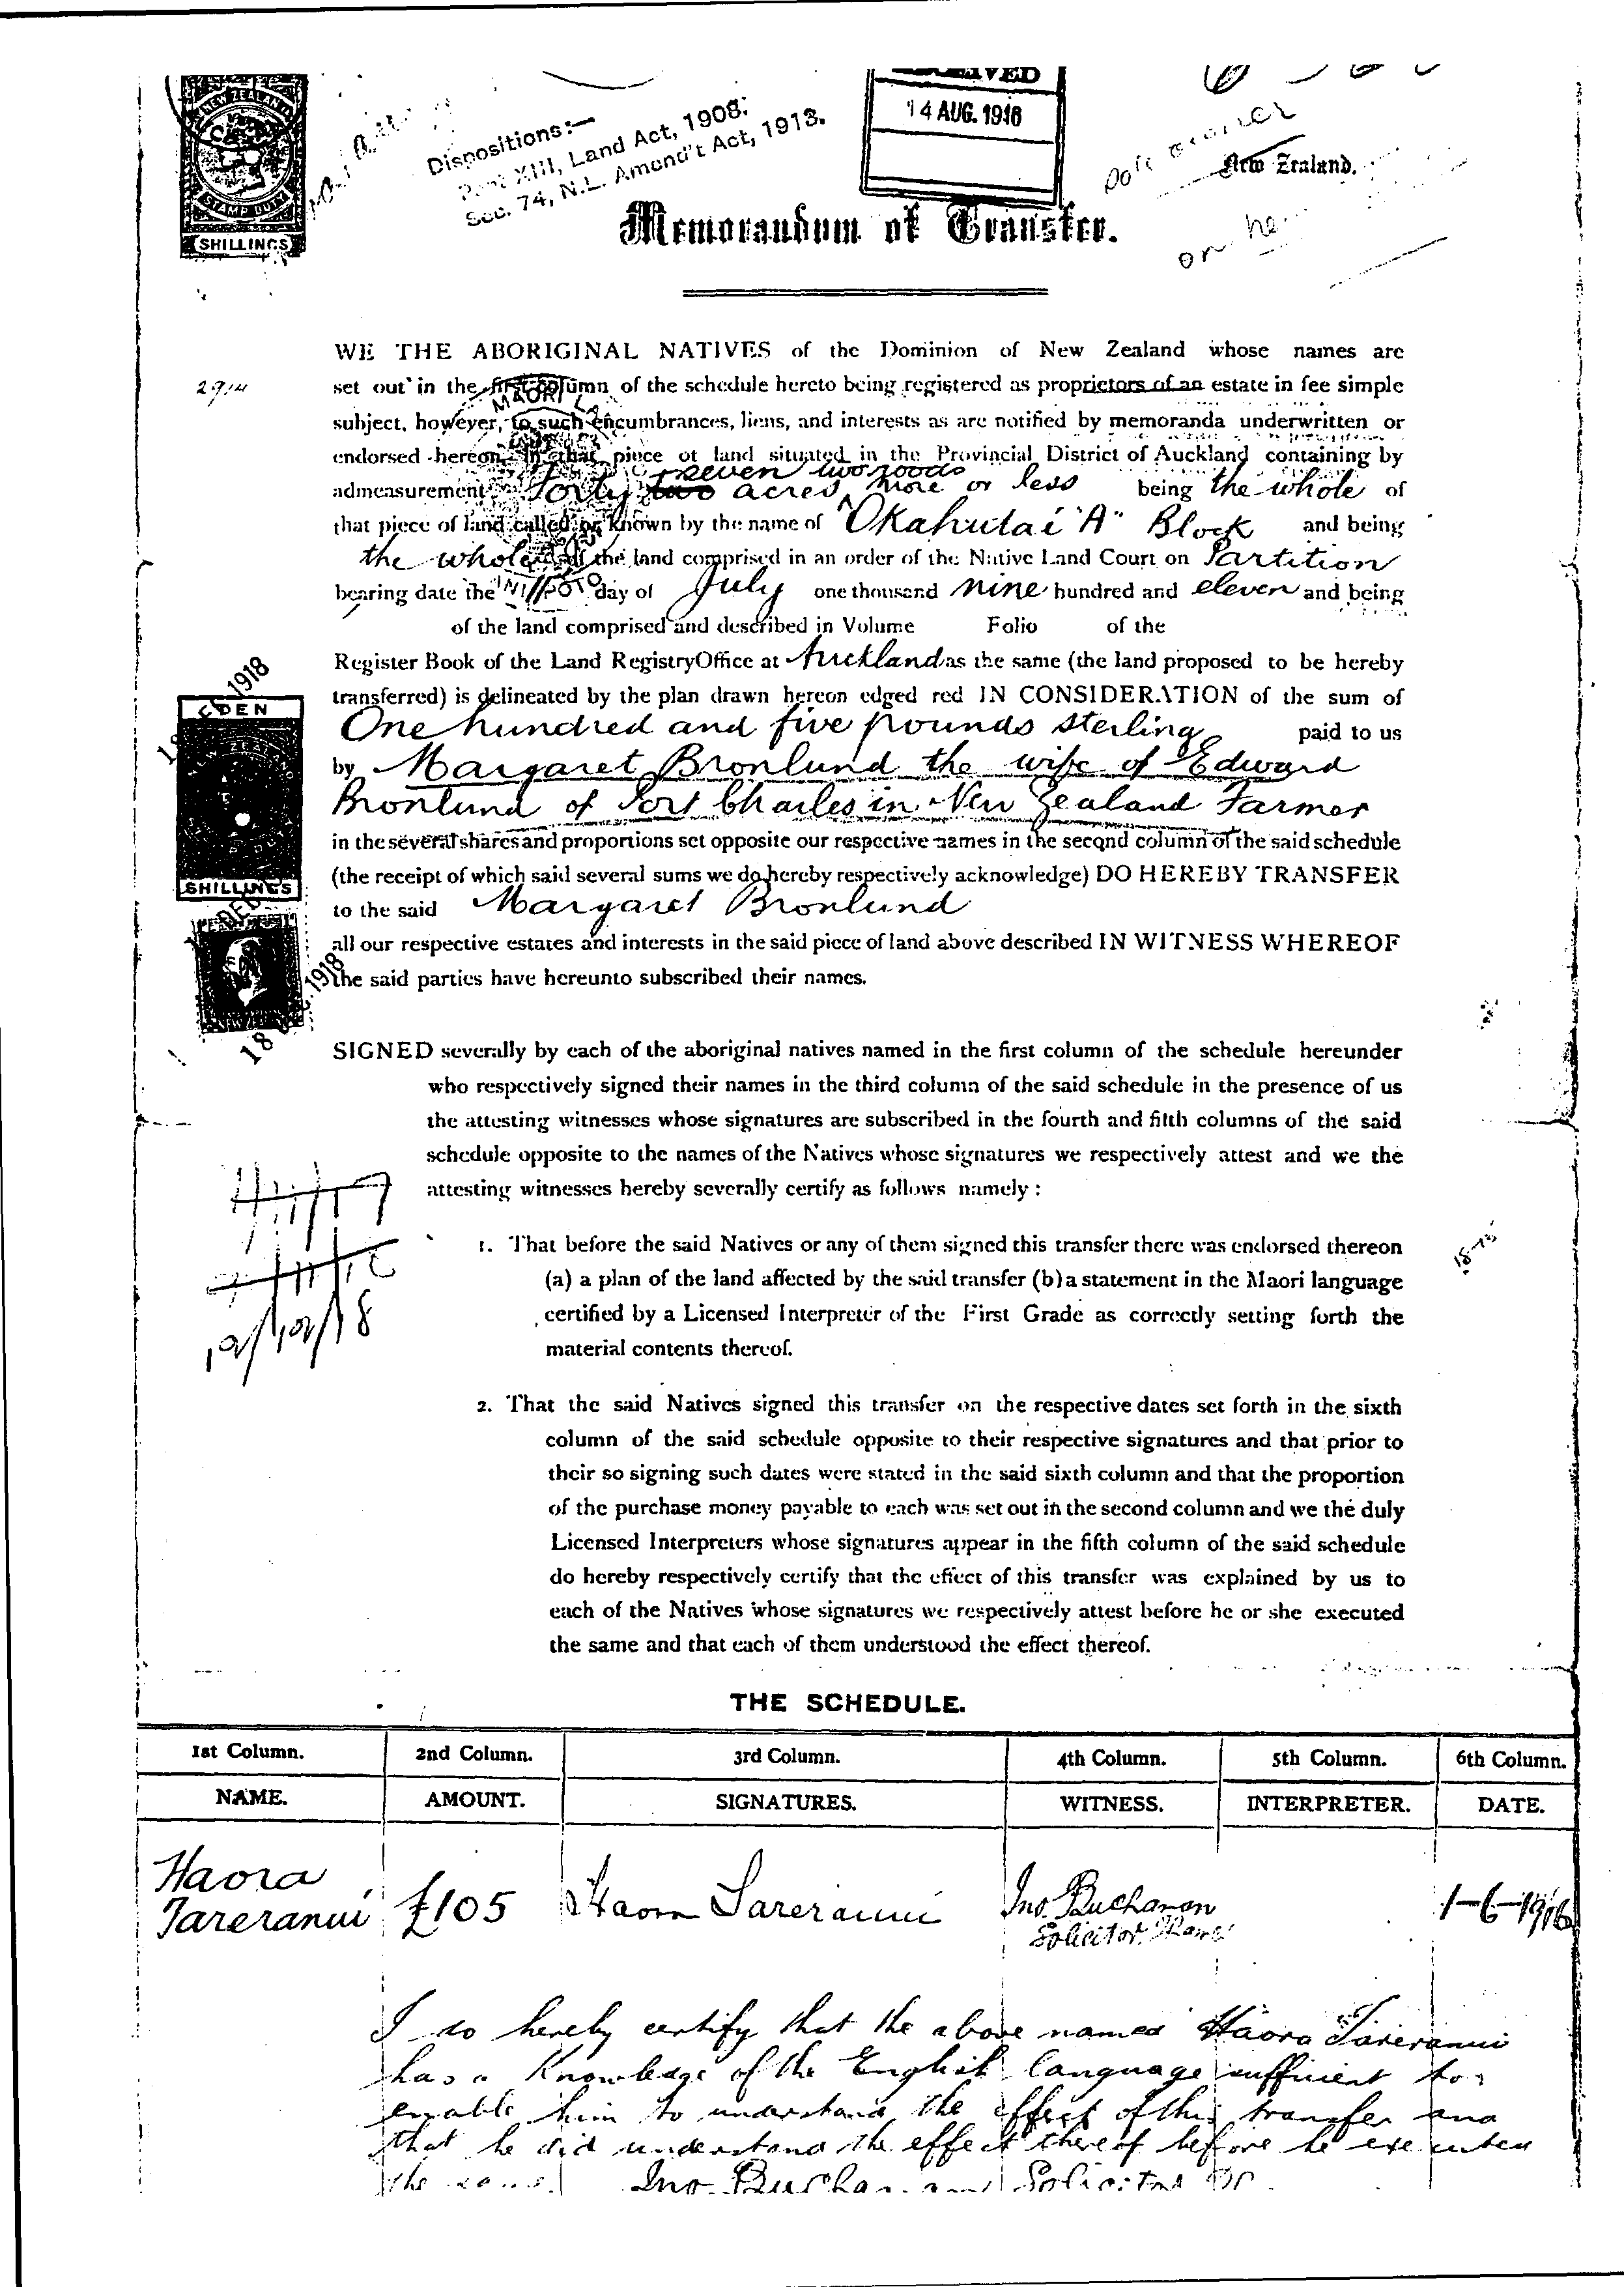 NEW ZEALAND
STAMP DUTY
SHILLINGS
Dispositions:—
Part XIII, Land Act, 1908.
Sec. 74, N.L. Amend't Act, 1913.
14 AUG. 1916
New Zealand.
on he
Memorandum of Transfer.
WE THE ABORIGINAL NATIVES of the Dominion of New Zealand whose names are
2914
set out in the first column of the schedule hereto being registered as proprietors of an estate in fee simple
subject, however, to such encumbrances, liens, and interests as are notified by memoranda underwritten or
endorsed hereon in that piece of land situated in the Provincial District of Auckland containing by
seven two roods
admeasurement Forty two acres more or less being the whole of
that piece of land called or known by the name of "Okahutai "A" Block and being
the whole of the land comprised in an order of the Native Land Court on Partition
bearing date the day of July one thousand nine hundred and eleven and being
of the land comprised and described in Volume Folio of the
Register Book of the Land Registry Office at Auckland as the same (the land proposed to be hereby
transferred) is delineated by the plan drawn hereon edged red IN CONSIDERATION of the sum of
One hundred and five pounds sterling paid to us
by Margaret Bronlund the wife of Edward
Bronlund of Port Charles in New Zealand Farmer
in the several shares and proportions set opposite our respective names in the second column of the said schedule
(the receipt of which said several sums we do hereby respectively acknowledge) DO HEREBY TRANSFER
to the said Margaret Bronlund
all our respective estates and interests in the said piece of land above described IN WITNESS WHEREOF
the said parties have hereunto subscribed their names.
1918
SHILLINGS
18 1918
SIGNED severally by each of the aboriginal natives named in the first column of the schedule hereunder
who respectively signed their names in the third column of the said schedule in the presence of us
the attesting witnesses whose signatures are subscribed in the fourth and fifth columns of the said
schedule opposite to the names of the Natives whose signatures we respectively attest and we the
attesting witnesses hereby severally certify as follows namely:
1. That before the said Natives or any of them signed this transfer there was endorsed thereon
(a) a plan of the land affected by the said transfer (b) a statement in the Maori language
certified by a Licensed Interpreter of the First Grade as correctly setting forth the
material contents thereof.
12/12/18
2. That the said Natives signed this transfer on the respective dates set forth in the sixth
column of the said schedule opposite to their respective signatures and that prior to
their so signing such dates were stated in the said sixth column and that the proportion
of the purchase money payable to each was set out in the second column and we the duly
Licensed Interpreters whose signatures appear in the fifth column of the said schedule
do hereby respectively certify that the effect of this transfer was explained by us to
each of the Natives whose signatures we respectively attest before he or she executed
the same and that each of them understood the effect thereof.
THE SCHEDULE.
1st Column. 2nd Column. 3rd Column. 4th Column. 5th Column. 6th Column.
NAME. AMOUNT. SIGNATURES. WITNESS. INTERPRETER. DATE.
Haora
Tareranui £105 Haora Tareranui Jno. Buchanan 1-6-1916
Solicitor
I do hereby certify that the above named Haora Tareranui
has a knowledge of the English language sufficient to
enable him to understand the effect of this transfer and
that he did understand the effect thereof before he executed
the same. Jno. Buchanan Solicitor